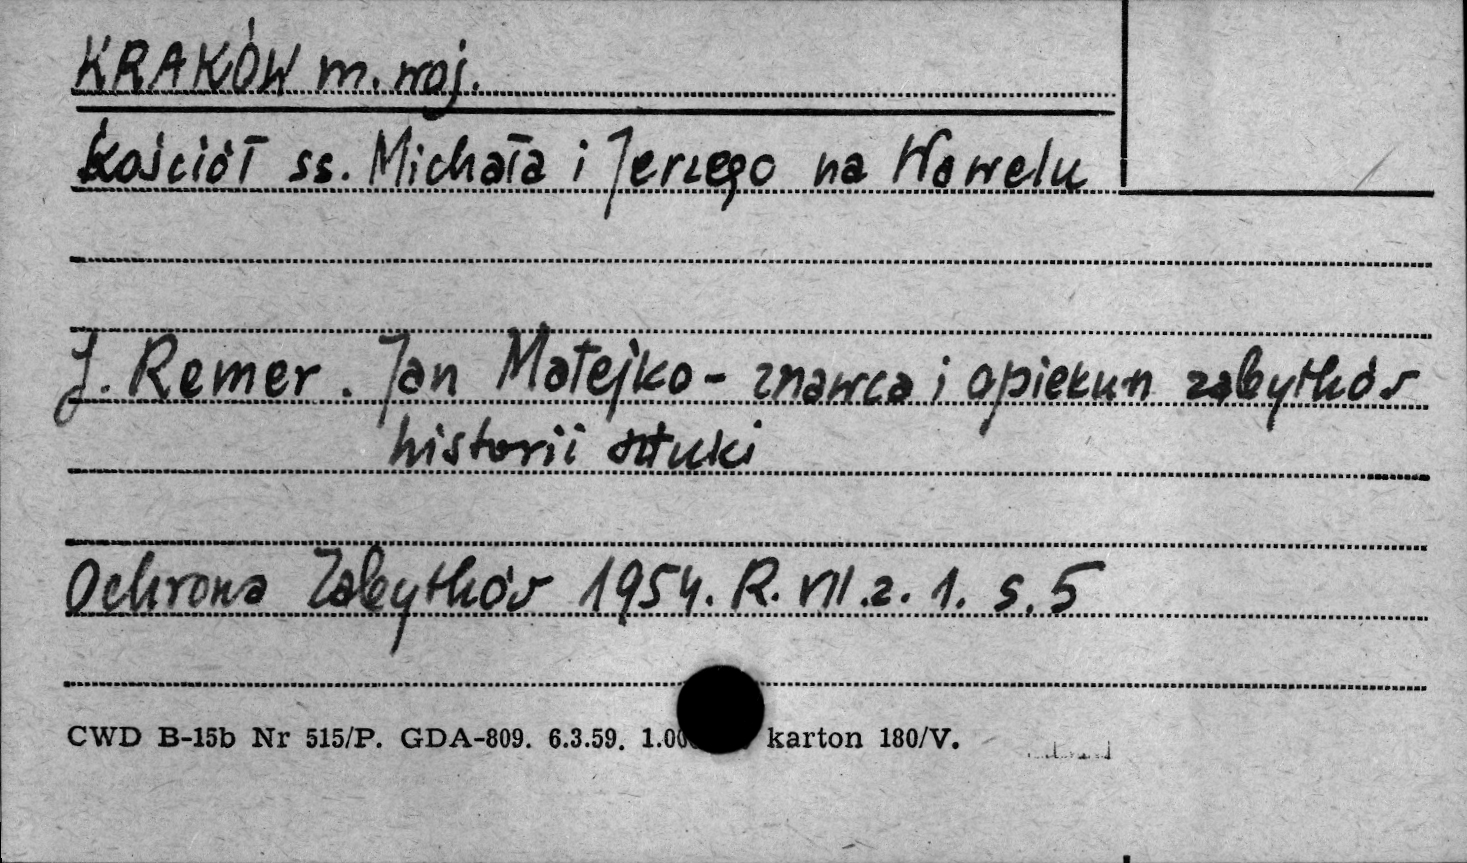 KRAKÓW m. woj.
Kościół ss. Michała i Jerzego na Wawelu
J. Remer. Jan Matejko - znawca i opiekun zabytków
historii sztuki
Ochrona Zabytków 1954. R. VII.z. 1. s. 5
CWD B-15b Nr 515/P. GDA-809. 6.3.59. karton 180/V.